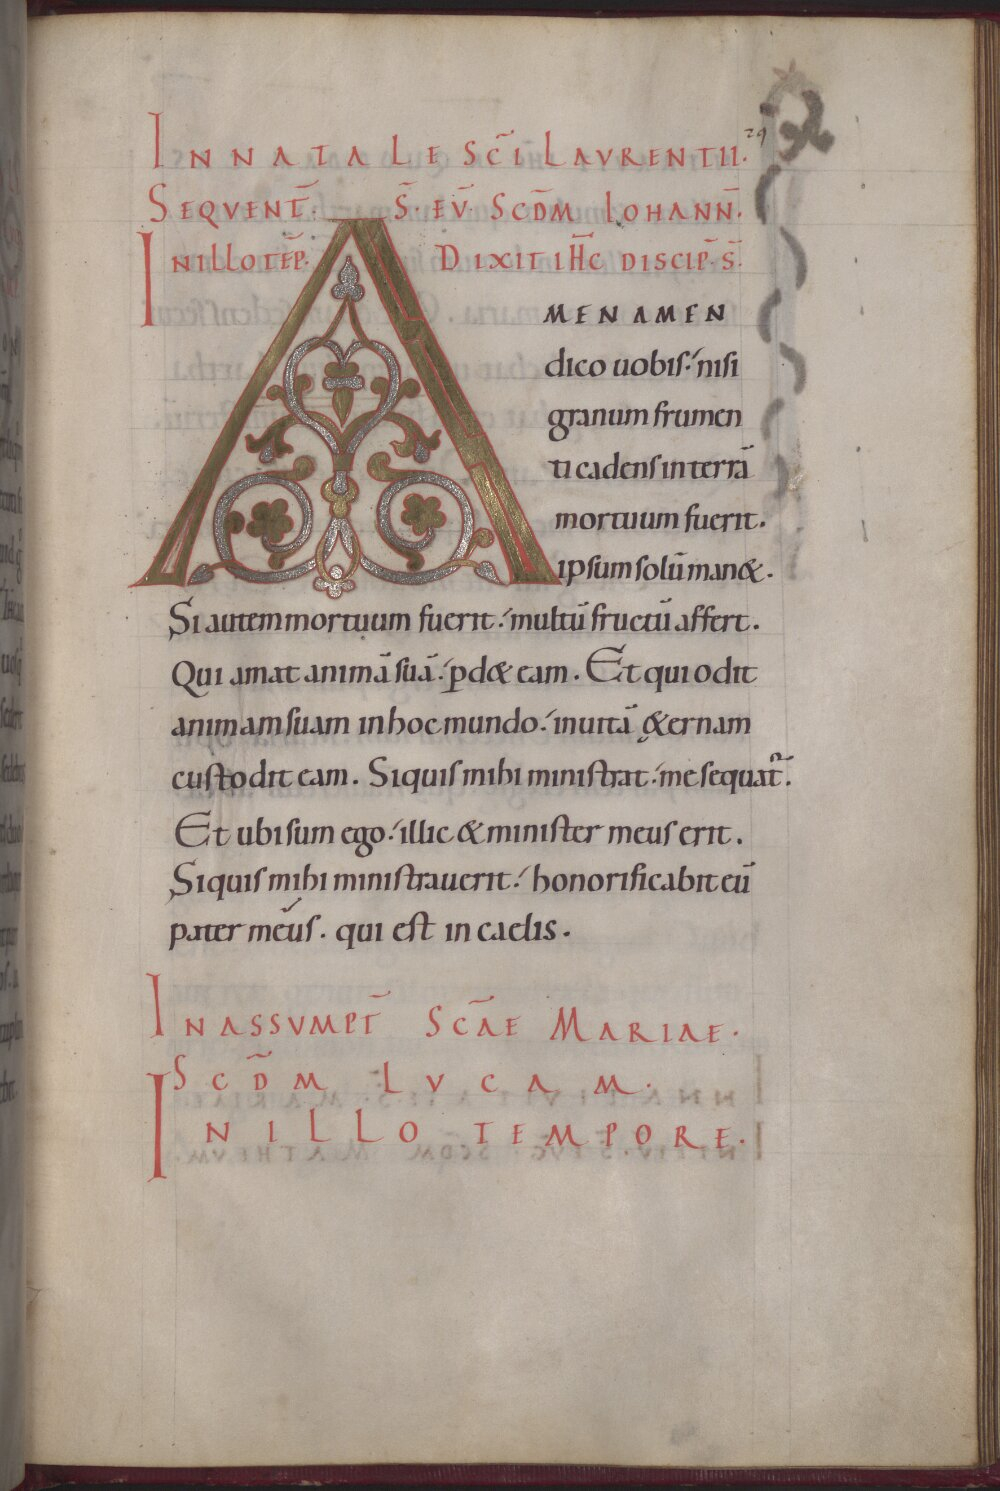 29
IN NATALE SC̄I LAVRENTII.
SEQVENT̄. S̄. EV̄. SCD̄M IOHANN̄.
IN ILLO TEP̄. DIXIT IH̄C DISCIP̄. S̄.
AMEN AMEN
dico uobis: nisi
granum frumen
ti cadens in terrā
mortuum fuerit.
ipsum solū man&.
Si autem mortuum fuerit: multū fructū affert.
Qui amat animā suā: ꝑd& eam. Et qui odit
animam suam in hoc mundo: in uitā &ernam
custodit eam. Siquis mihi ministrat: me sequat̄.
Et ubi sum ego: illic & minister meus erit.
Siquis mihi ministrauerit: honorificabit eū
pater meus. qui est in caelis.
IN ASSVMPT̄ SC̄AE MARIAE.
SCD̄M LVCAM.
IN ILLO TEMPORE.